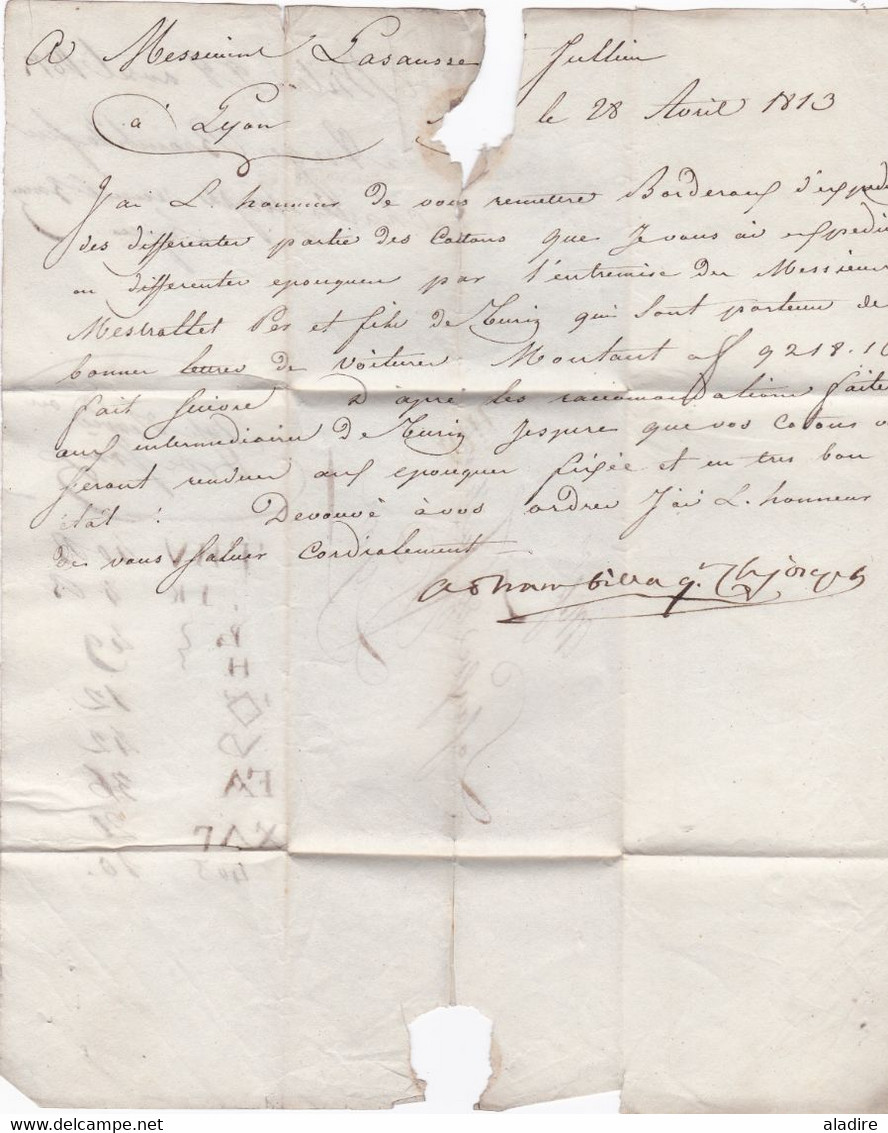 A Messieurs Lasausse Jullien
à Lyon le 28 Avril 1813
J'ai L. honneur de vous remetere Borderaux d'exped
des differenter partie des Cottons que Je vous ai expedi
au differenter epouquer par l'entremise der Messieur
Mestrallet Per et fils de Turin qui sont porteur de
bonner lettres de Voiturer Montant a f 9218.10
fait suivre D'aprè les raccomandations faite
aux intermediairer De Turin Jespere que vos Cotons
seront renduer aux epouquer fixée et en tres bon
état : Devouvé à vos ordrer J'ai L. honneur
de vous saluer Cordialement
delcampe.net
aladire